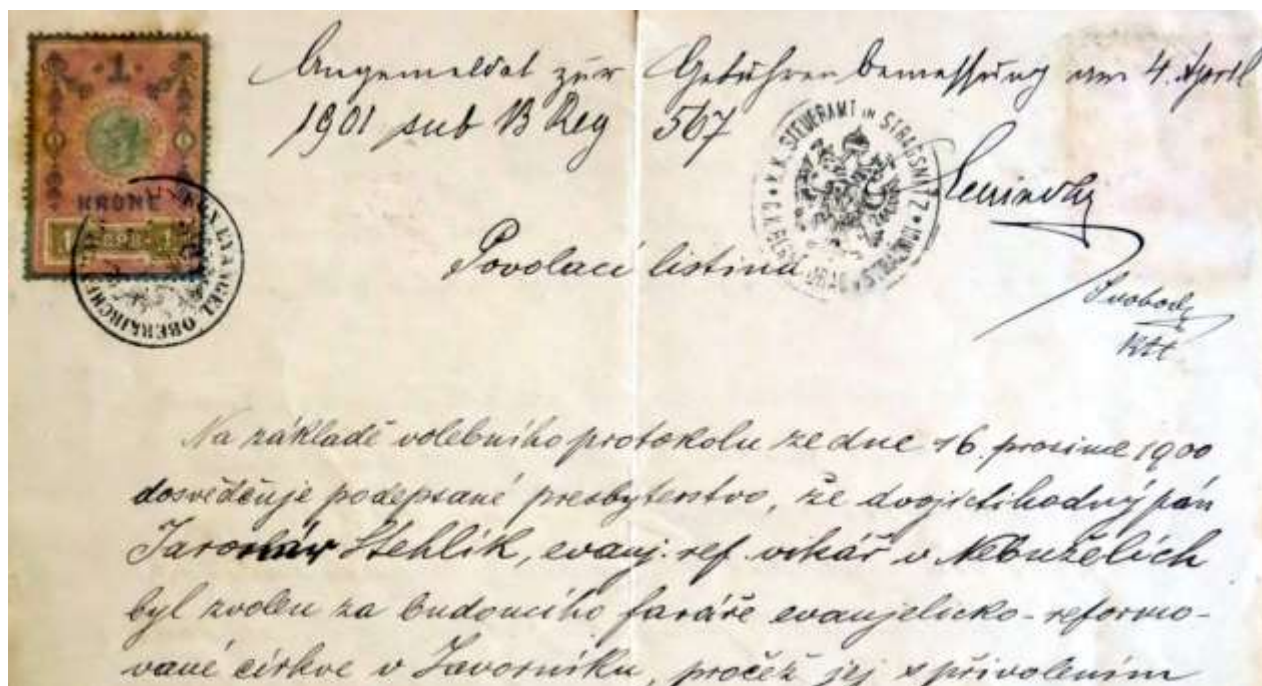 Angemeldet zur Gebühren bemessung am 4. April
1901 sub B Reg 567
1
KRONE
K.K. STEUERAMT IN STRASSNITZ
K.K. EVANGEL. OBERKIRCHEN
Povolací listina
Svoboda
Na základě volebního protokolu ze dne 16. prosince 1900
dosvědčuje podepsané presbyterstvo, že dvojctihodný pán
Jaroslav Stehlík, evanj. ref. vikář v Nebuželích
byl zvolen za budoucího faráře evanjelicko-reformo-
vané církve v Javorníku, pročež jej s přivolením